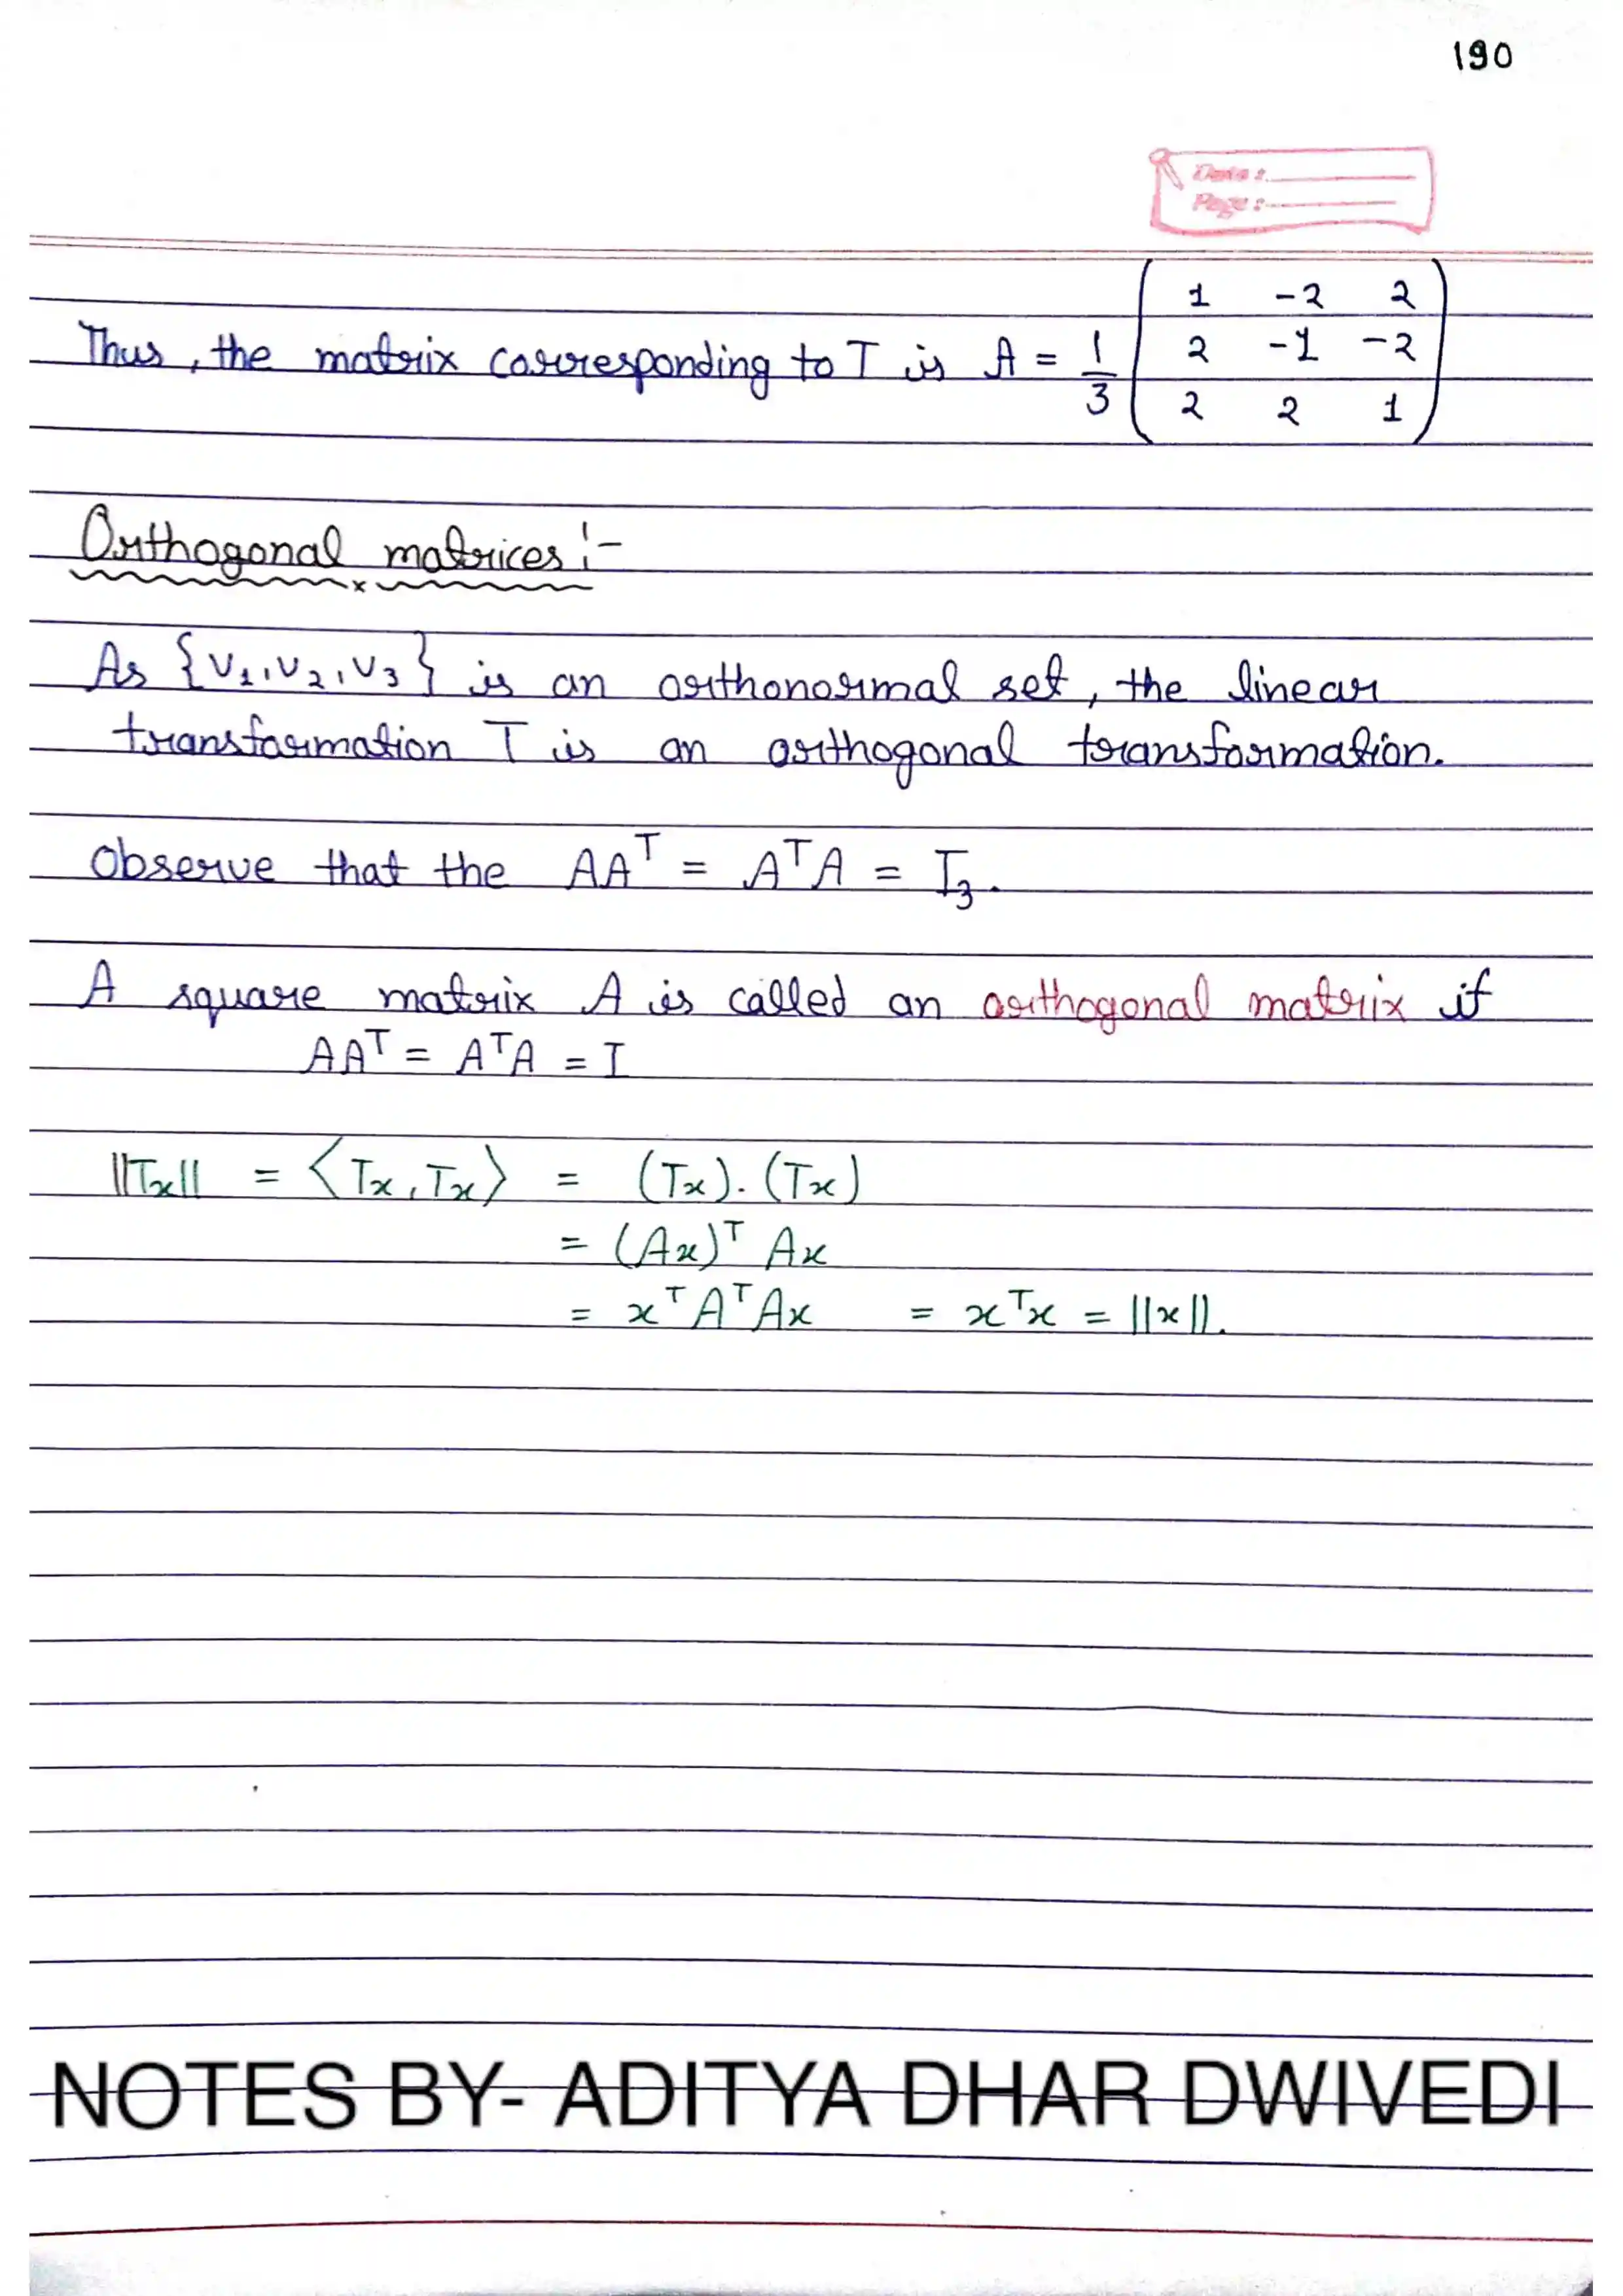 190
Date :
Page :
Thus, the matrix corresponding to T is A = 1/3 ( 1 -2 2
2 -1 -2
2 2 1 )
Orthogonal matrices :-
As {v₁, v₂, v₃} is an orthonormal set, the linear
transformation T is an orthogonal transformation.
Observe that the AAᵀ = AᵀA = I₃.
A square matrix A is called an orthogonal matrix if
AAᵀ = AᵀA = I
||Tx|| = ⟨Tx, Tx⟩ = (Tx).(Tx)
= (Ax)ᵀ Ax
= xᵀAᵀAx = xᵀx = ||x||.
NOTES BY- ADITYA DHAR DWIVEDI